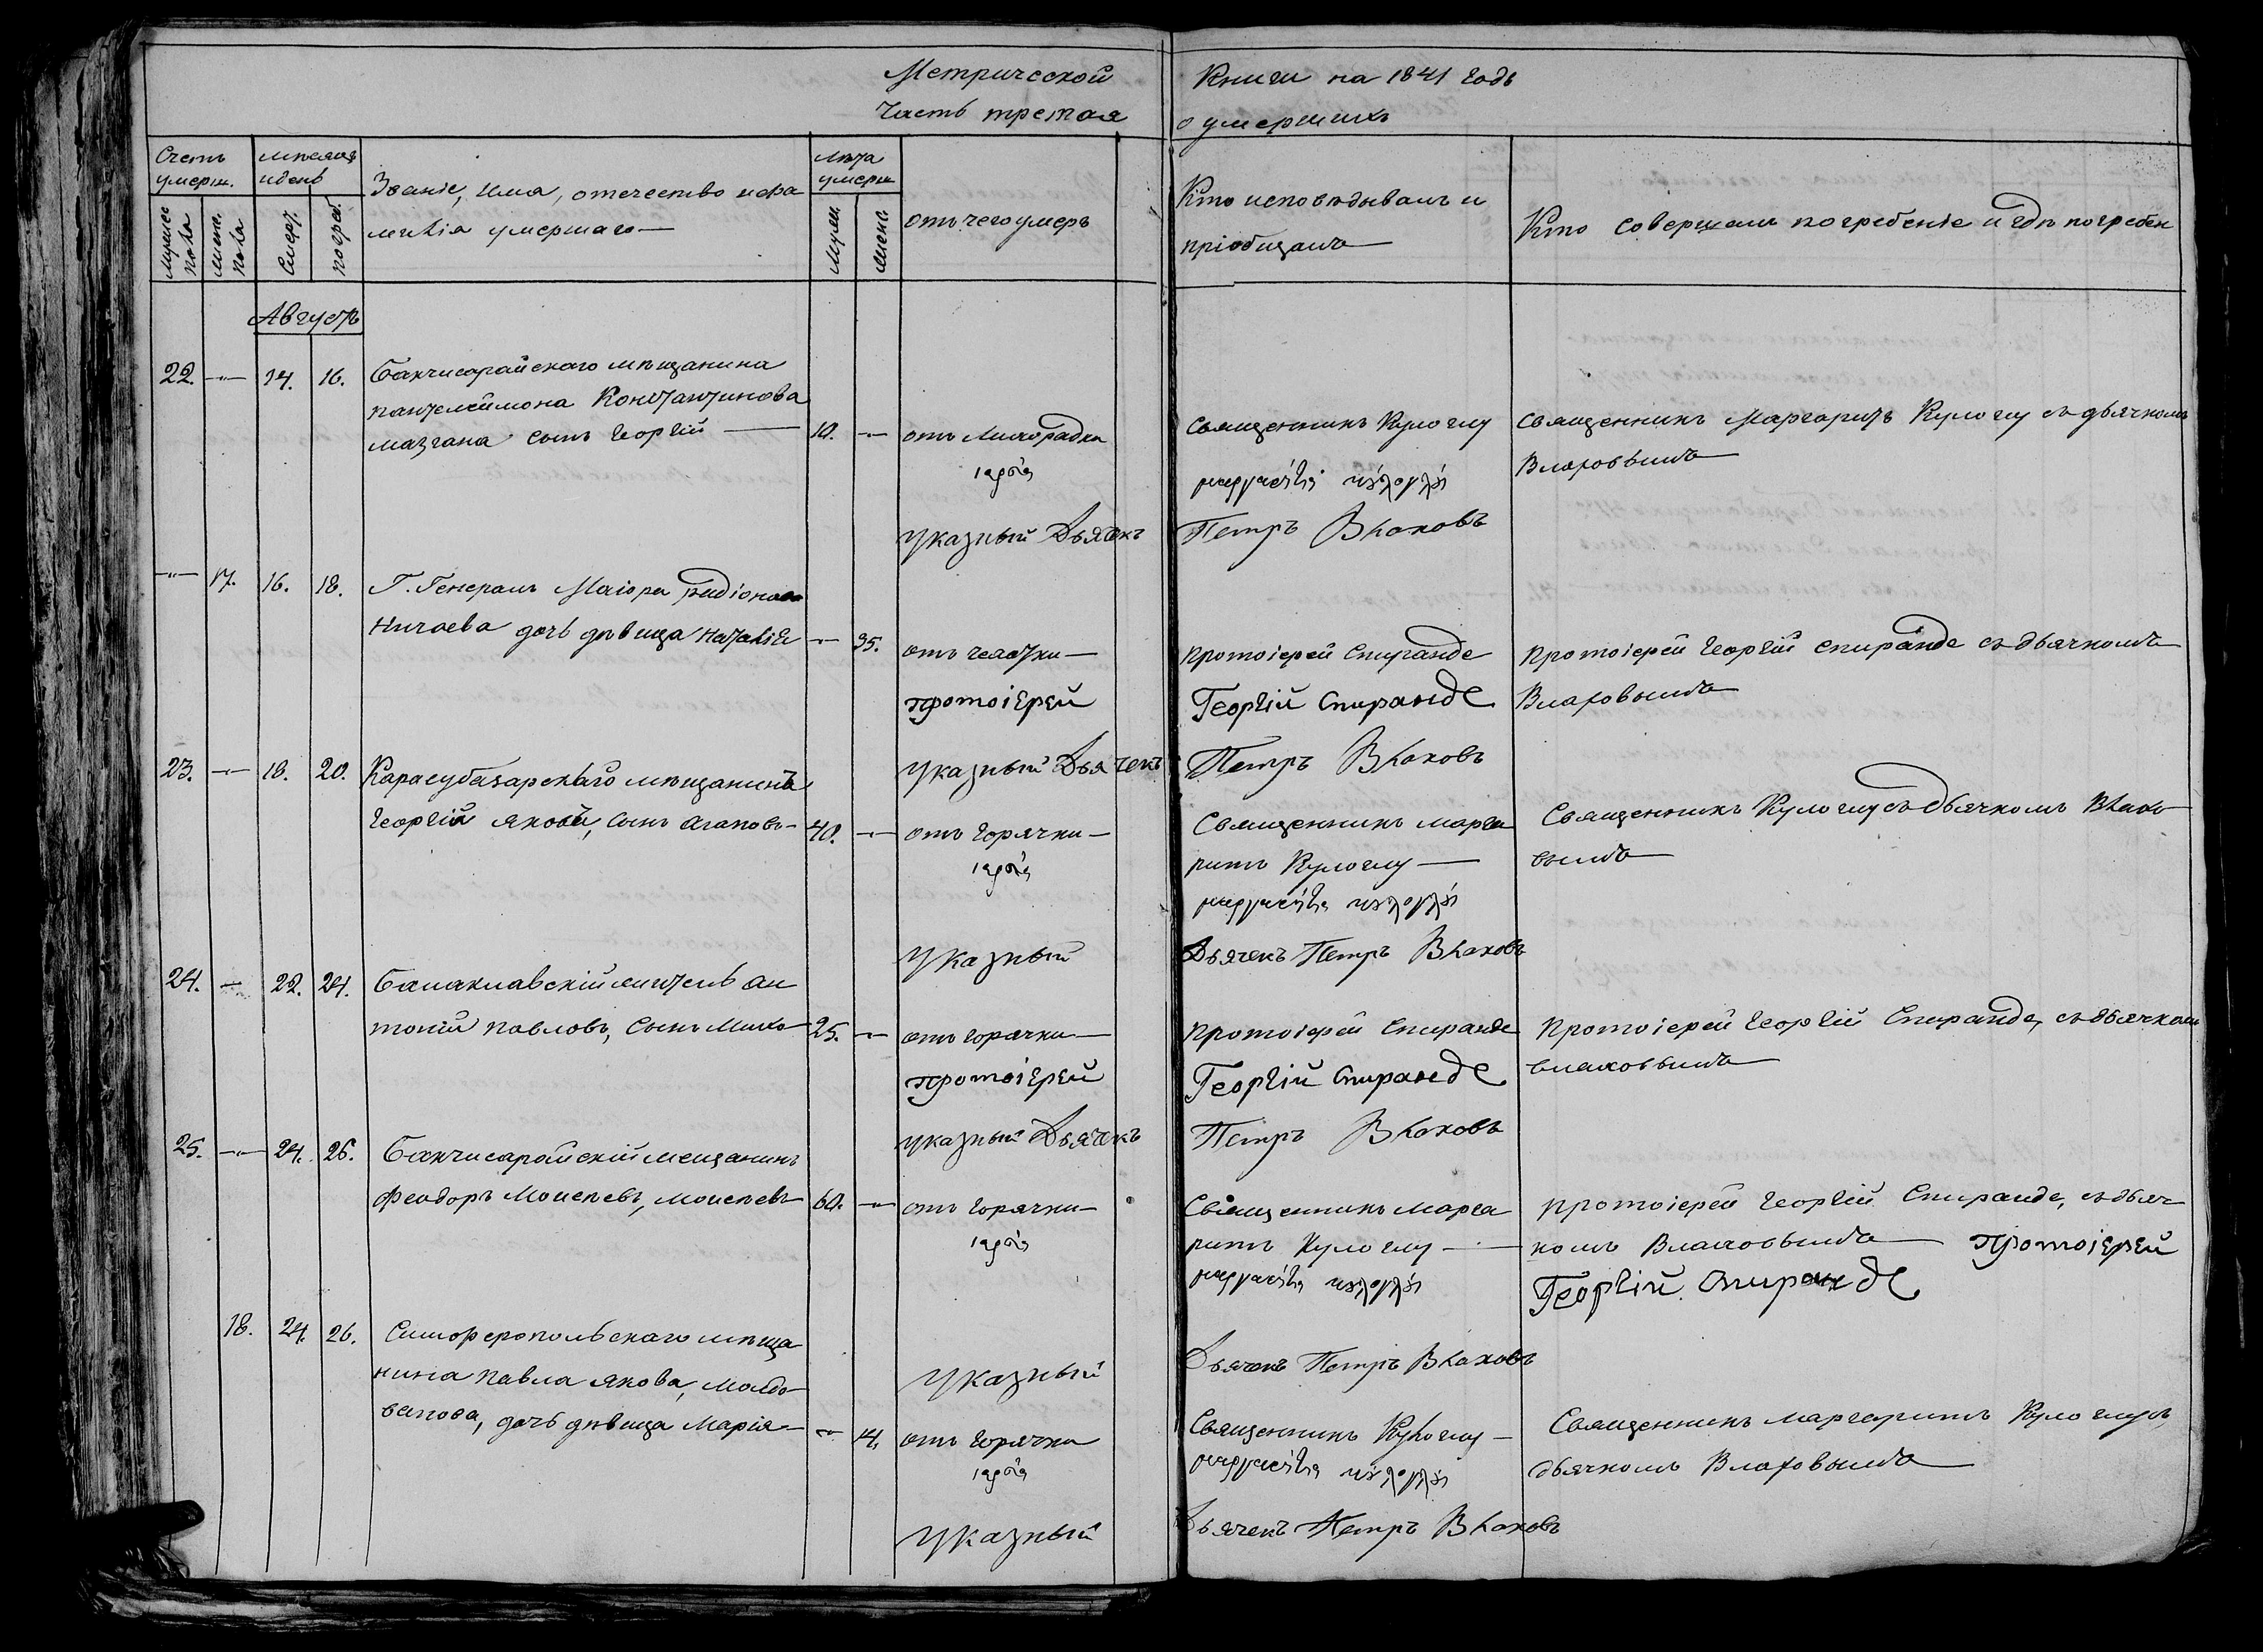 Метрической Книги на 1841 годъ
Часть третая о умершихъ
Счетъ умерш.
Мужеска пола
Женс. пола
Мѣсяцъ и день
Смерт.
погреб.
Званіе, имя, отечество и фа
милія умершаго
Лѣта умерш
Мужи.
Женс.
отъ чего умеръ
Кто исповѣдывалъ и
пріобщалъ
Кто совершалъ погребеніе и гдѣ погребен
Августъ
22. 14. 16. Бахчисарайскаго мѣщанина
пантелеймона Константинова
мазгана сынъ Георгій 10. отъ Лихорадки
священникъ Кулоглу
священникъ Маргаритъ Кулоглу съ дьячкомъ
Влаховымъ
указный Дьячекъ Петръ Влаховъ
17. 16. 18. Г. Генералъ Маіора
дочь дѣвица Наталія 35. отъ чахотки
протоіерей Спиранде
протоіерей Георгій спиранде съ дьячкомъ
Влаховымъ
протоіерей Георгій Спиранде
указный Дьячекъ Петръ Влаховъ
23. 18. 20. Карасубазарскаго мѣщанинъ
Георгій яковъ, сынъ Агаповъ 40. отъ горячки
Священникъ марга
ритъ Кулоглу
Священникъ Кулоглу съ дьячкомъ Влахо
вымъ
указный Дьячекъ Петръ Влаховъ
24. 22. 24. Балаклавскій житель ан
тоній павловъ, сынъ Михо 25. отъ горячки
протоіерей Спиранде
протоіерей Георгій Спиранде, съ дьячкомъ
влаховымъ
протоіерей Георгій Спиранде
указный Дьячекъ Петръ Влаховъ
25. 24. 26. Бахчисарайскій мещанинъ
Феодоръ Моисеевъ, моисеевъ 60. отъ горячки
Священникъ марга
ритъ Кулоглу
протоіерей Георгій Спиранде, съ дьяч
комъ Влаховымъ протоіерей
Георгій Спиранде
указный Дьячекъ Петръ Влаховъ
18. 24. 26. Симферопольскаго мѣща
нина павла якова, молдо
ванова, дочь дѣвица Марія 14. отъ горячки
Священникъ Кулоглу
Священникъ маргаритъ Кулоглу съ
дьячкомъ Влаховымъ
указный Дьячекъ Петръ Влаховъ